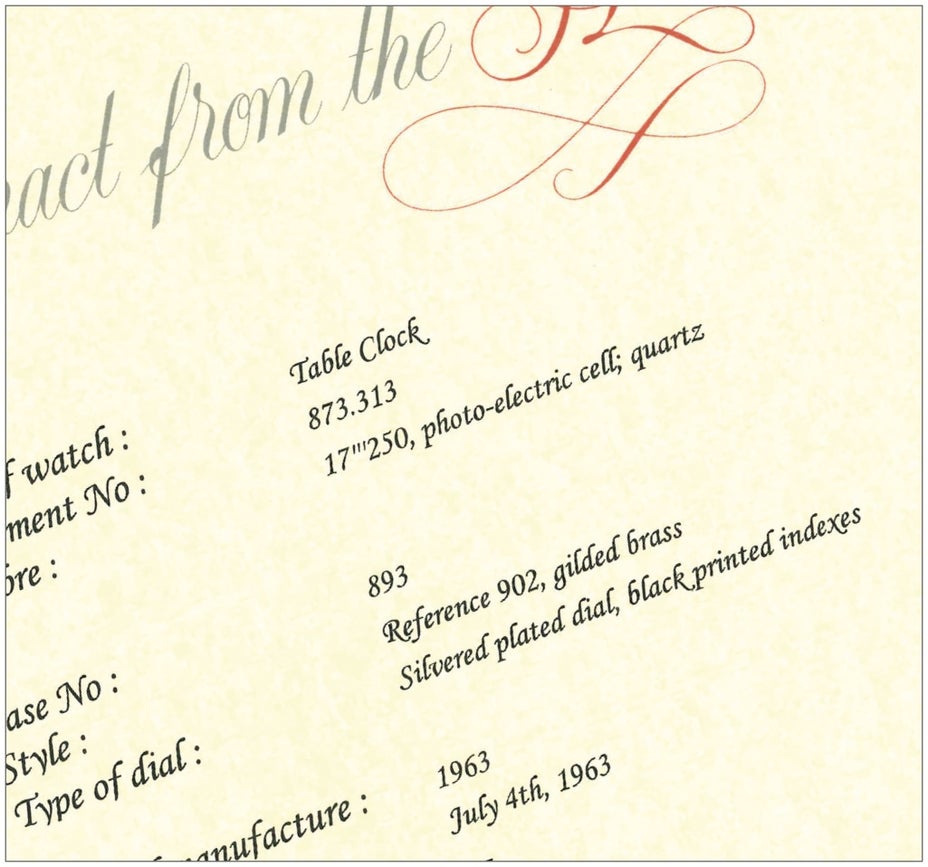 act from the
f watch : Table Clock
ment No : 873.313
bre : 17'''250, photo-electric cell; quartz
ase No : 893
Style : Reference 902, gilded brass
Type of dial : Silvered plated dial, black printed indexes
manufacture : 1963
July 4th, 1963